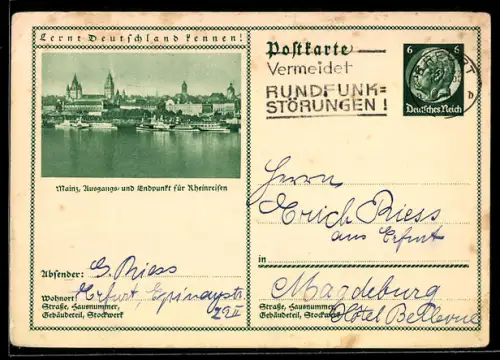 Lernt Deutschland kennen!
Postkarte
6 6
Deutsches Reich
Vermeidet
RUNDFUNK=
STÖRUNGEN!
ERFURT
b
Mainz, Ausgangs- und Endpunkt für Rheinreisen
Herrn
Erich Riess
aus Erfurt
in
Magdeburg
Hôtel Bellevue
Straße, Hausnummer,
Gebäudeteil, Stockwerk
Absender: G. Riess
Wohnort Erfurt,
Straße, Hausnummer,
Gebäudeteil, Stockwerk